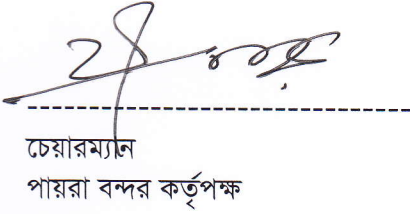 চেয়ারম্যান
পায়রা বন্দর কর্তৃপক্ষ